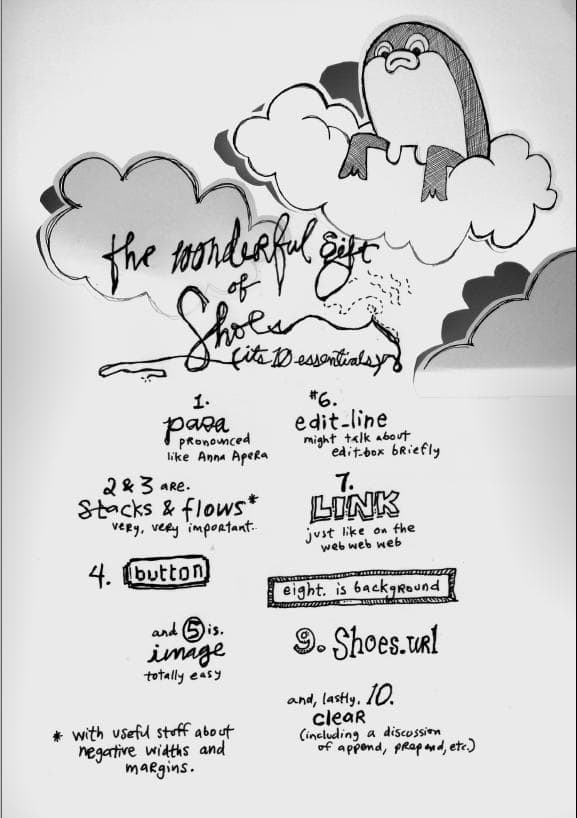 the wonderful gift
of
Shoes
(its 10 essentials)
1.
para
pronounced
like Anna Apera
2 & 3 are.
Stacks & flows*
very, very important.
4. button
and 5 is.
image
totally easy
* with useful stuff about
negative widths and
margins.
#6.
edit_line
might talk about
edit_box briefly
7.
LINK
just like on the
web web web
eight. is background
9. Shoes.url
and, lastly, 10.
clear
(including a discussion
of append, prepend, etc.)